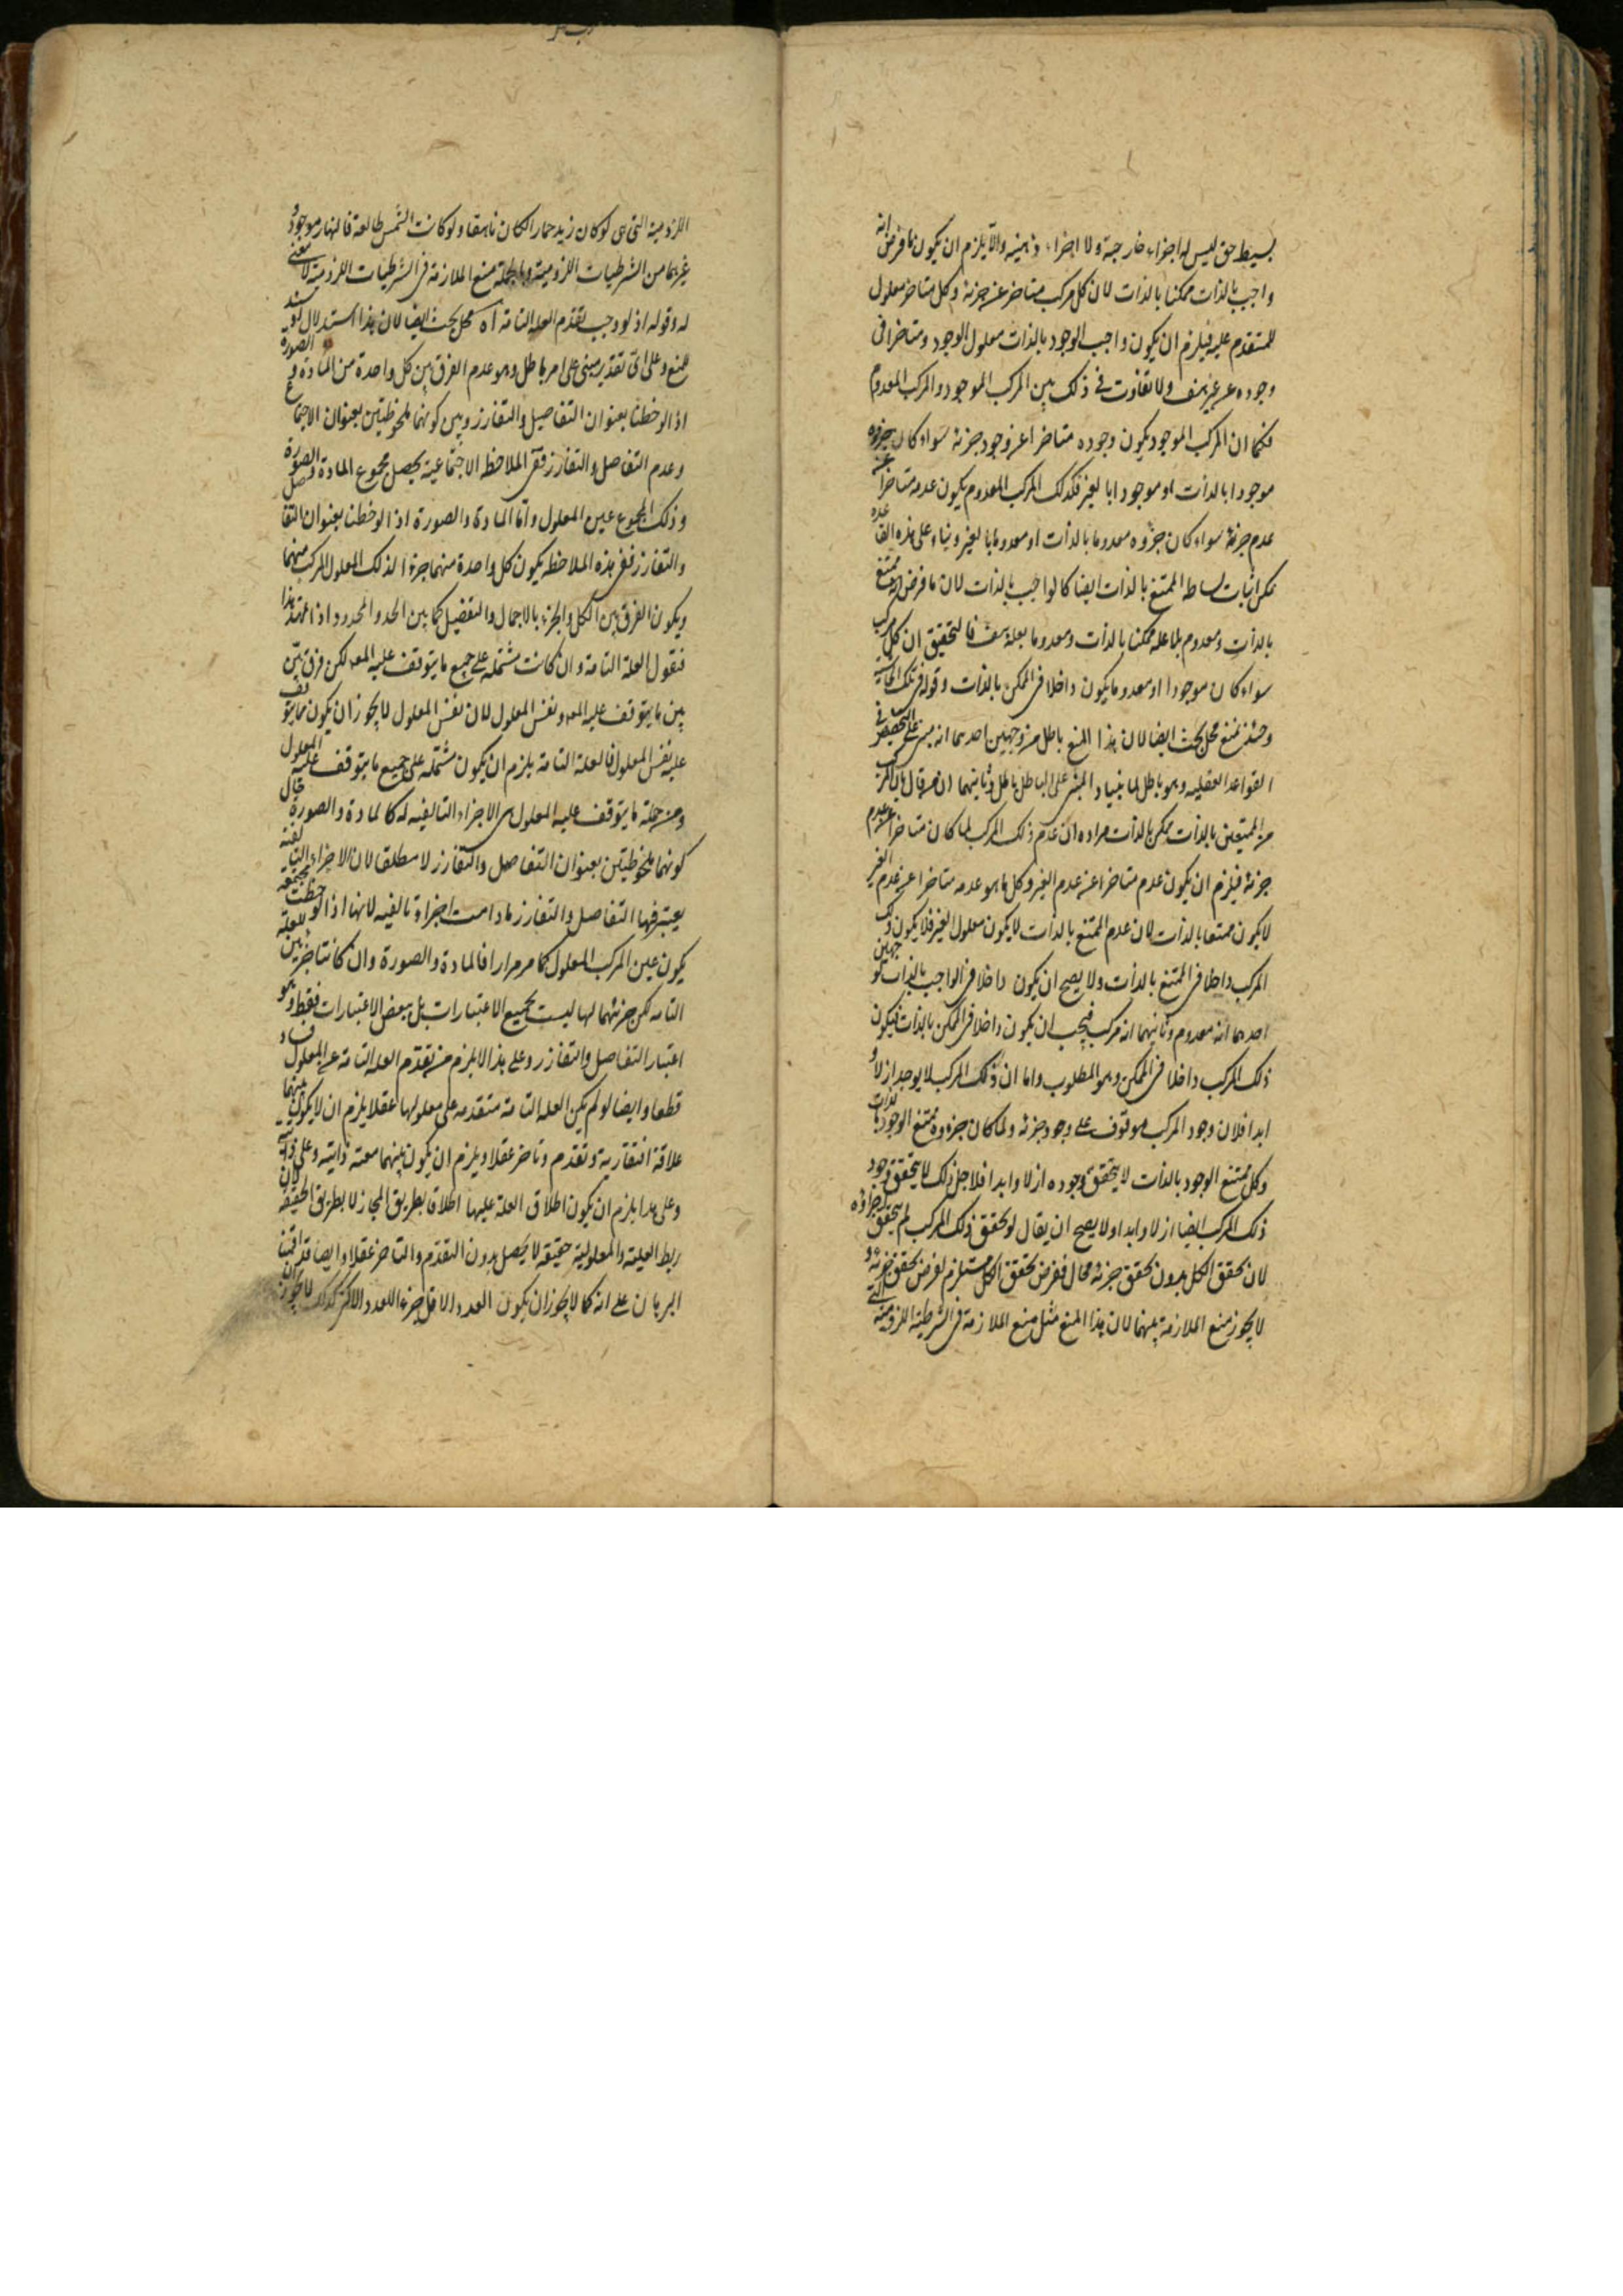 بسيط حق ليس له اجزاء خارجية ولا اجزاء ذهنية والا يلزم ان يكون ما فرض انه
واجب بالذات ممكنا بالذات لان كل مركب متاخر عن جزئه وكل متاخر معلول
للمتقدم عليه فيلزم ان يكون واجب الوجود بالذات معلول الوجود ومتاخرا فى
وجوده عن غيره هف ولا تفاوت فى ذلك بين المركب الموجود والمركب المعدوم
فكما ان المركب الموجود يكون وجوده متاخرا عن وجود جزئه سواء كان جزؤه
موجودا بالذات او موجودا بالغير فكذلك المركب المعدوم يكون عدمه متاخرا عن
عدم جزئه سواء كان جزؤه معدوما بالذات او معدوما بالغير وبناء على هذه القاعدة
يمكن اثبات بساطة الممتنع بالذات ايضا كالواجب بالذات لان ما فرض انه ممتنع
بالذات ومعدوم بلا علة ممكنا بالذات ومعدوما بعلة هف فالتحقيق ان كل مركب
سواء كان موجودا او معدوما يكون داخلا فى الممكن بالذات وقوله فى تلك الحاشية
وحينئذ نمنع محل بحث ايضا لان هذا المنع باطل من وجهين احدهما انه مبنى على التخصيص فى
القواعد العقلية وهو باطل لما بينا والمبنى على الباطل باطل وثانيهما ان من قال بان المركب
من الممتنعين بالذات ممكن بالذات مراده ان عدم ذلك المركب لما كان متاخرا عن عدم
جزئه فيلزم ان يكون عدمه متاخرا عن عدم الغير وكل ما هو عدمه متاخرا عن عدم الغير
لا يكون ممتنعا بالذات لان عدم الممتنع بالذات لا يكون معلول الغير فلا يكون ذلك
المركب داخلا فى الممتنع بالذات ولا يصح ان يكون داخلا فى الواجب بالذات لوجهين
احدهما انه معدوم وثانيهما انه مركب فيجب ان يكون داخلا فى الممكن بالذات فيكون
ذلك المركب داخلا فى الممكن وهو المطلوب واما ان ذلك المركب لا يوجد ازلا و
ابدا فلان وجود المركب موقوف على وجود جزئه ولما كان جزؤه ممتنع الوجود بالذات
وكل ممتنع الوجود بالذات لا يتحقق وجوده ازلا وابدا فلاجل ذلك لا يتحقق وجود
ذلك المركب ايضا ازلا وابدا ولا يصح ان يقال لو تحقق ذلك المركب لم يتحقق اجزاؤه
لان تحقق الكل بدون تحقق جزئه محال ففرض تحقق الكل مستلزم لفرض تحقق جزئه و
لا يجوز منع الملازمة بينهما لان هذا المنع مثل منع الملازمة فى الشرطية اللزومية التى
اللزومية التى هى لو كان زيد حمارا لكان ناهقا ولو كانت الشمس طالعة فالنهار موجود و
غيرهما من الشرطيات اللزومية وبالجملة منع الملازمة فى الشرطيات اللزومية لا معنى
له وقوله اذ لو وجب تقدم العلة التامة اه محل بحث ايضا لان هذا استدلال لو سند
للمنع وعلى اى تقدير مبنى على امر باطل وهو عدم الفرق بين كل واحدة من المادة و الصورة
اذا لوحظتا بعنوان التفاصيل والتفارز وبين كونهما ملحوظتين بعنوان الاجتماع
وعدم التفاصل والتفارز ففى الملاحظة الاجتماعية يحصل مجموع المادة والصورة
وذلك المجموع عين المعلول واما المادة والصورة اذا لوحظتا بعنوان التفاصل
والتفارز ففى هذه الملاحظة يكون كل واحدة منهما جزءا لذلك المعلول المركب منهما
ويكون الفرق بين الكل والجزء بالاجمال والتفصيل كما بين الحد والمحدود اذا تمهد هذا
فنقول العلة التامة وان كانت مشتملة على جميع ما يتوقف عليه المعـ لكن فرق بين
بين ما يتوقف عليه المعـ ونفس المعلول لان نفس المعلول لا يجوز ان يكون مما يتوقف
عليه نفس المعلول فالعلة التامة يلزم ان يكون مشتملة على جميع ما يتوقف عليه المعلول
ومن جملة ما يتوقف عليه المعلول هى الاجزاء التاليفية له كالمادة والصورة حال
كونهما ملحوظتين بعنوان التفاصل والتفارز لا مطلقا لان الاجزاء التاليفية
يعتبر فيها التفاصل والتفارز ما دامت اجزاء تاليفية لانها اذا لوحظت مجتمعة
يكون عين المركب المعلول كما مر مرارا فالمادة والصورة وان كانتا جزئين للعلة
التامة لكن جزئيتهما لها ليست بجميع الاعتبارات بل ببعض الاعتبارات فقط وهو
اعتبار التفاصل والتفارز وعلى هذا لا يلزم من تقدم العلة التامة على المعلول فساد
قطعا وايضا لو لم يكن العلة التامة متقدمة على معلولها عقلا يلزم ان لا يكون بينهما
علاقة افتقارية وتقدم وتاخر عقلا ويلزم ان يكون بينهما معية ذاتية وعلى
وعلى هذا يلزم ان يكون اطلاق العلة عليها اطلاقا بطريق المجاز لا بطريق الحقيقة لان
ربط العلية والمعلولية حقيقة لا يحصل بدون التقدم والتاخر عقلا وايضا قد اقمنا
البرهان على انه كما لا يجوز ان يكون العدد الاقل جزء للعدد الاكثر كذلك لا يجوز ان